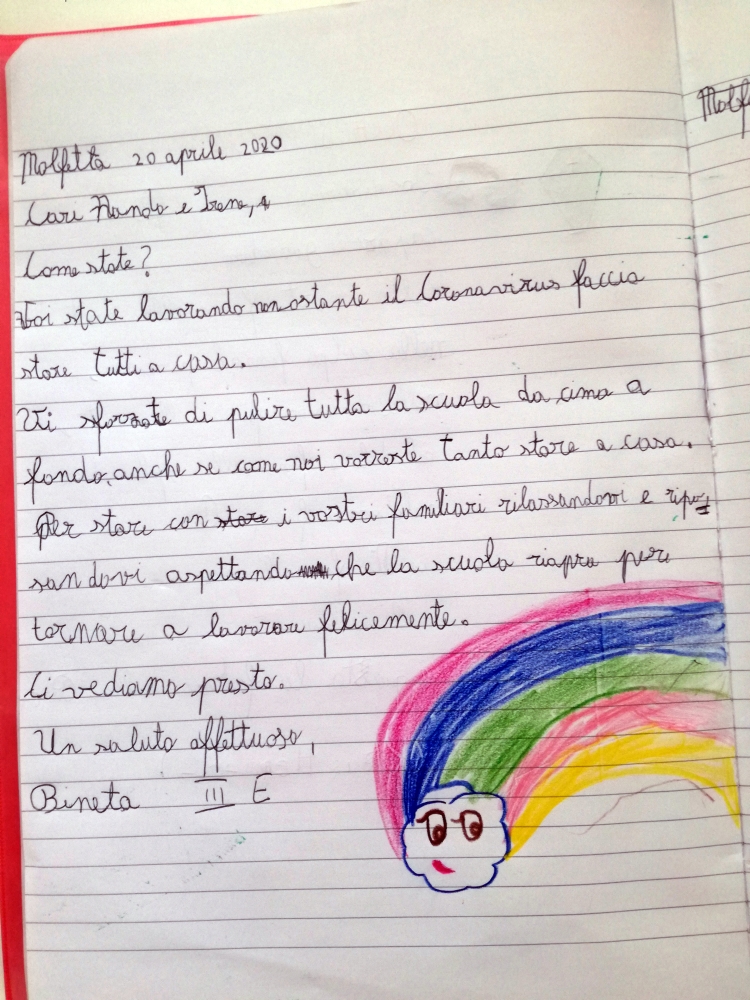 Molfetta 20 aprile 2020
Cari Nando e Irene,
Come state?
Voi state lavorando nonostante il Coronavirus faccia
stare tutti a casa.
Vi sforzate di pulire tutta la scuola da cima a
fondo, anche se come noi vorreste tanto stare a casa.
Per stare con stare i vostri familiari rilassandovi e ripo-
sandovi aspettando che la scuola riapra per
tornare a lavorare felicemente.
Ci vediamo presto.
Un saluto affettuoso,
Bineta III E